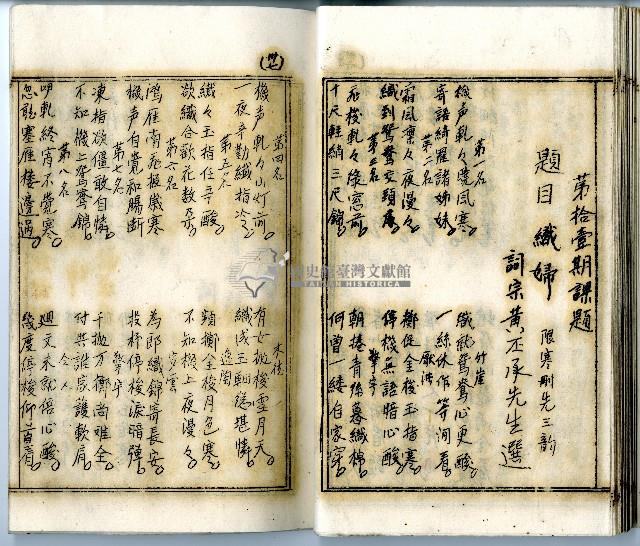 第拾壹期課題
題目 織婦 限寒刪先三韵
詞宗黃丕承先生選
第一名 竹崖
機声軋々曉風寒。 織就鴛鴦心更酸。
寄語綺羅諸姊妹。 一絲休作等閒看。
第二名
霜風凜々夜漫々。 擲促金梭玉指寒。
織到鴛鴦交頸處。 停機無語暗心酸。
第三名 擎宇
飛梭軋々綠窓前。 朝捲青絲暮織棉。
十尺輕綃三尺錦。 何曾一縷自家穿。
第四名
機声軋々小灯前。 有女抛梭雪月天。
一夜辛勤纖指冷。 織成三匹總堪憐。
第五名
纖々玉指任辛酸。 頻擲金梭月色寒。
欲織合歡花數朵。 不知機上夜漫々。
第六名 少雲
鴻雁南飛極感寒。 為郎織錦寄長安。
機声自覺和腸斷。 投杼停梭淚暗彈。
第七名 擎宇
凍指欲僵敢自憐。 千抛万擲尚難全。
不知機上鴛鴦錦。 付与誰家護軟肩。
第八名 仝人
呷軋終宵不覺寒。 廻文未就倍心酸。
忽聽塞雁樓邊過。 幾度停梭仰首看。
國史館臺灣文獻館
TAIWAN HISTORICA